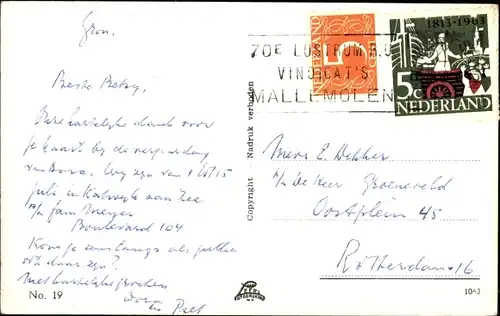 Gron.
Beste Betsy,
Hartelijke dank voor
je kaart bij de verjaardag
van Dora. Wij zijn van 1 tot 15
juli in Katwijk aan Zee
p/a fam. Meyer
Boulevard 104
Kom je eens langs als jullie
ook daar zijn?
Met hartelijke groeten
en Piet
No. 19
Copyright Nadruk verboden
FOTODRUKKERIJ
70E LUSTRUM R.U.
VINDICAT'S
MALLEMOLEN
NEDERLAND
5
1813-1963
5c
NEDERLAND
Mevr. E. Dekker
p/a De Heer Groeneveld
Oostplein 45
Rotterdam-16
1043